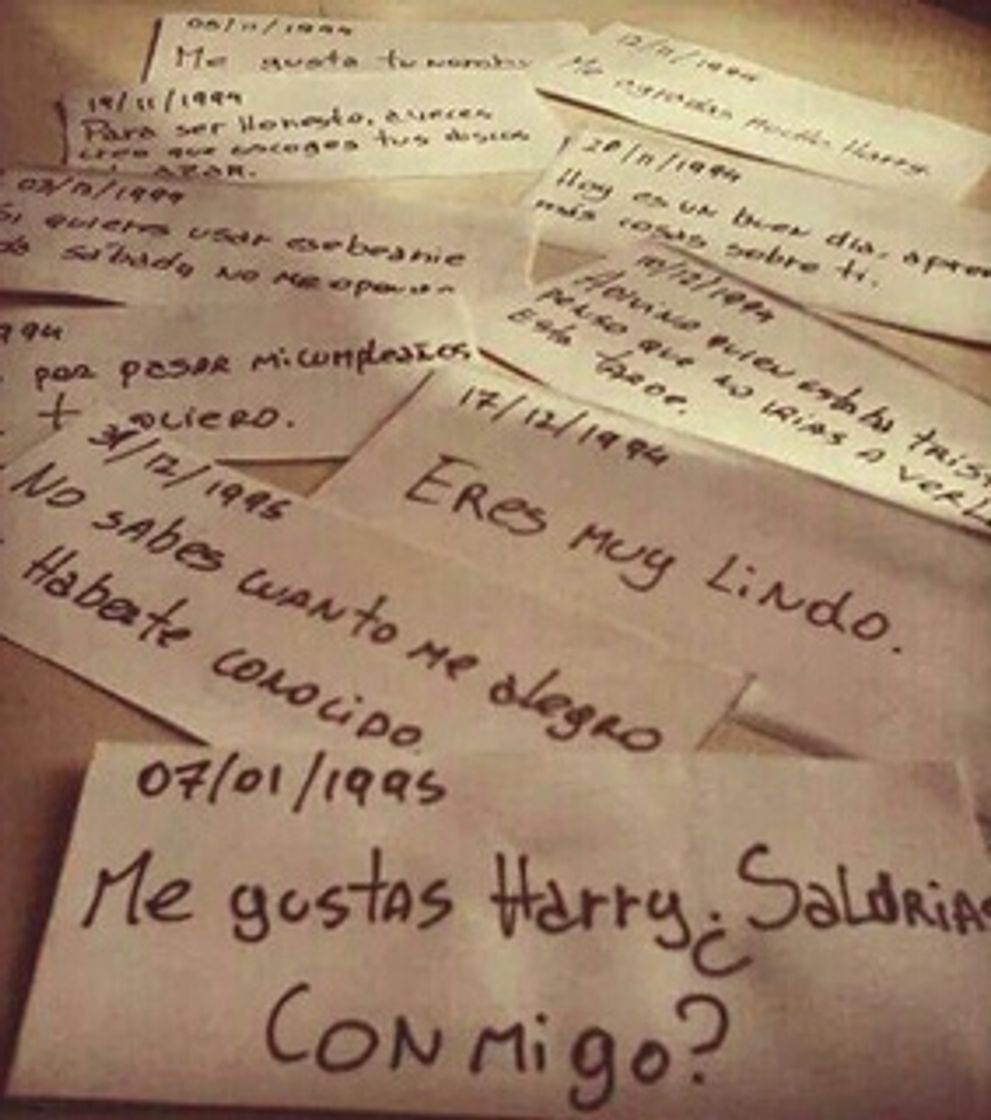 05/11/1994
Me gusta tu nombre
12/11/1994
Me agradas mucho Harry.
19/11/1994
Para ser Honesto, aveces
creo que escoges tus discos
AZAR.
28/11/1994
Hoy es un buen dia, apren
más cosas sobre ti.
03/12/1994
Si quieres usar ese beanie
sábado NO me
10/12/1994
quien estaba trist
penso que no irias a verl
Esta tarde.
994
por pasar mi cumpleaños
t quiero.
17/12/1994
ERes muy Lindo.
31/12/1995
No sabes cuanto me alegro
Haberte conocido.
07/01/1995
Me gustas Harry ¿Saldrias
Conmigo?